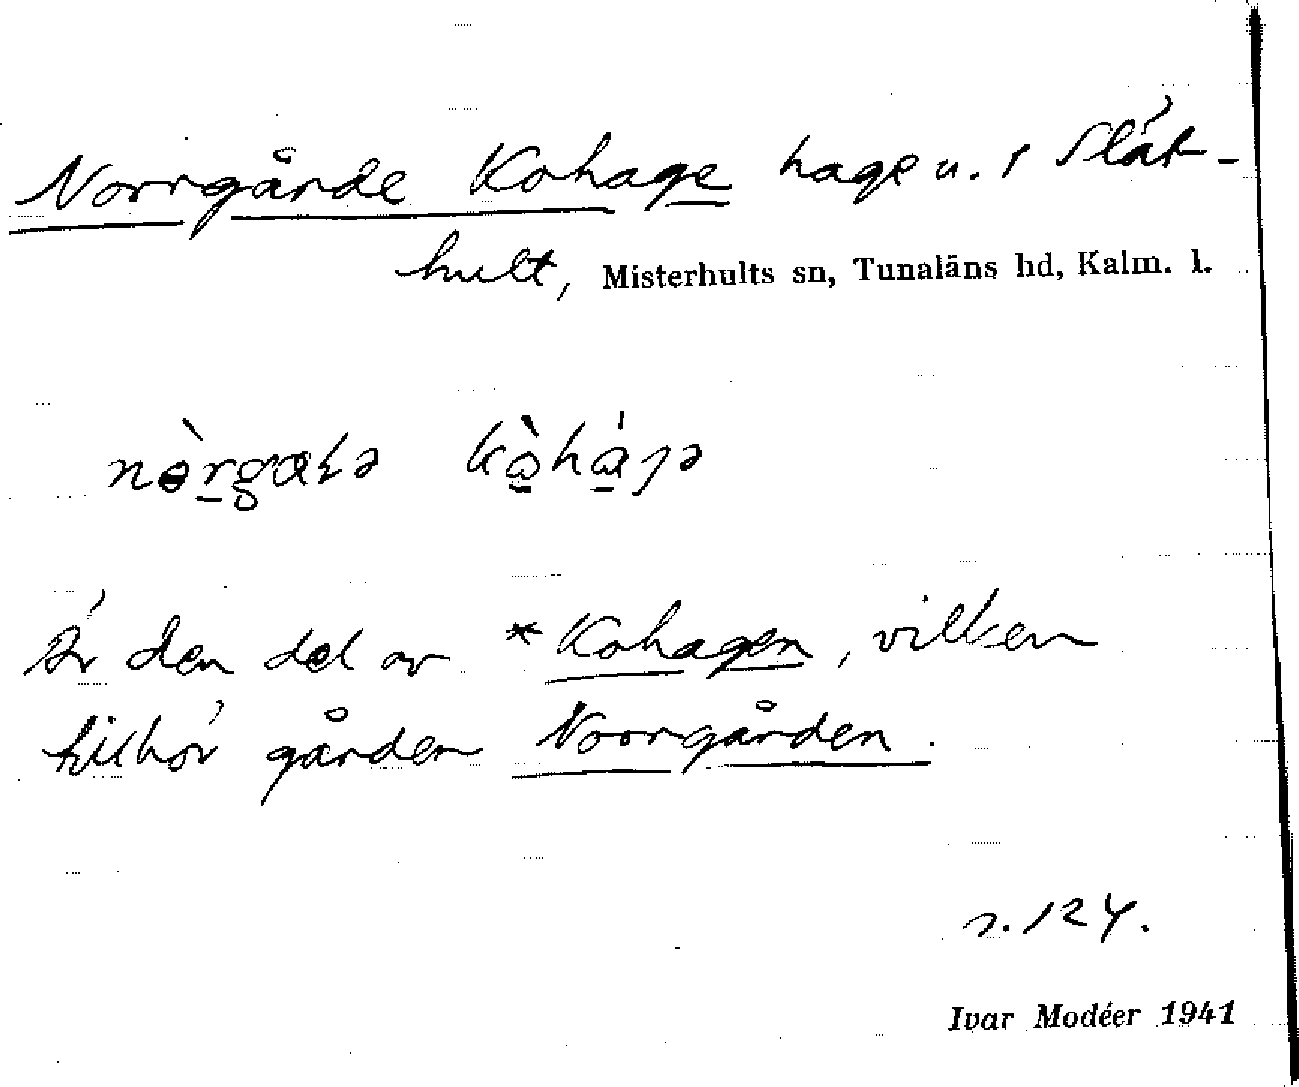 Norrgårde Kohage hage u. 1 Slät-
hult, Misterhults sn, Tunaläns hd, Kalm. l.
Är den del av *Kohagen, vilken
tillhör gården Norrgården.
s. 124.
Ivar Modéer 1941